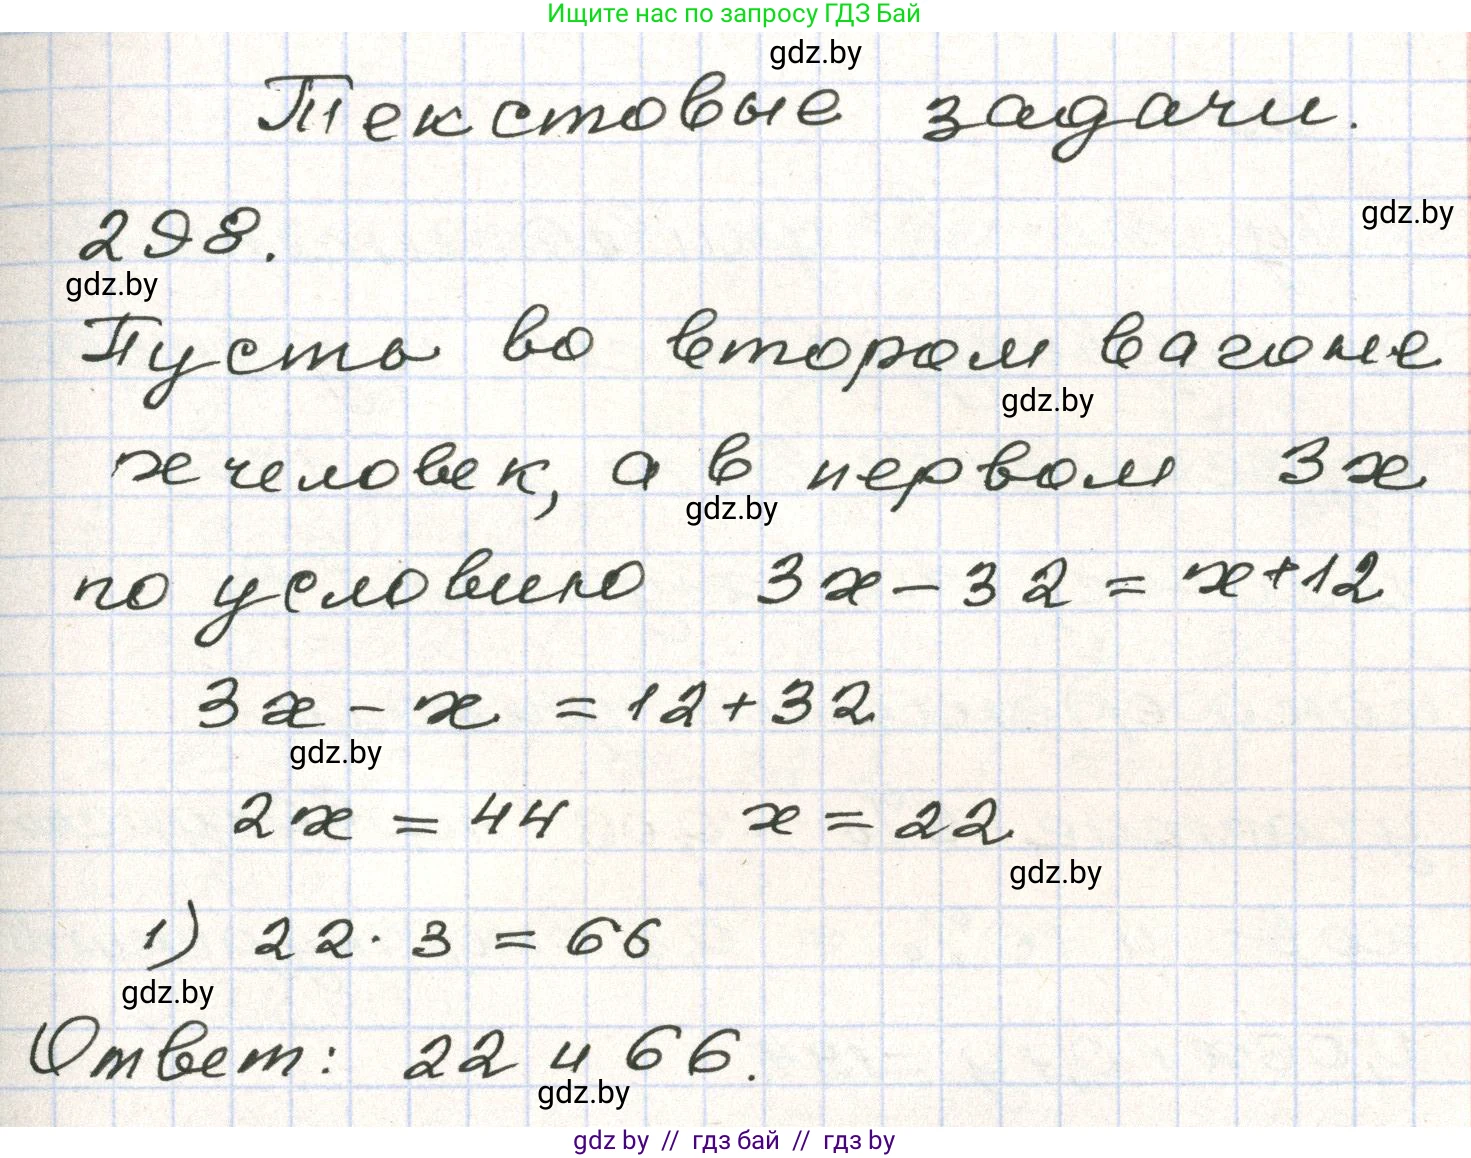 Ищите нас по запросу ГДЗ Бай
gdz.by
Текстовые задачи.
gdz.by
298.
gdz.by
Пусть во втором вагоне
gdz.by
x человек, а в первом 3x
gdz.by
по условию 3x - 32 = x + 12
3x - x = 12 + 32
gdz.by
2x = 44 x = 22
gdz.by
1) 22 · 3 = 66
gdz.by
Ответ: 22 и 66.
gdz.by
gdz by // гдз бай // гдз by